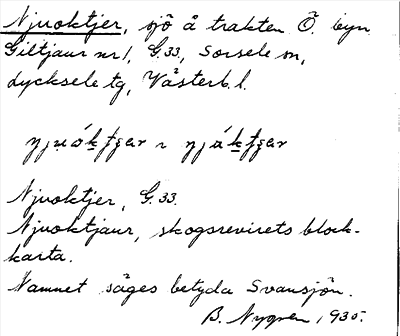 Njuoktjer, sjö å trakten Ö. byn
Giltjaur nr 1, G. 33., Sorsele sn,
Lycksele tg, Västerb. l.
Njuoktjer, G. 33.
Njuoktjaur, skogsrevirets block-
karta.
Namnet säges betyda Svansjön.
B. Nygren, 1935.